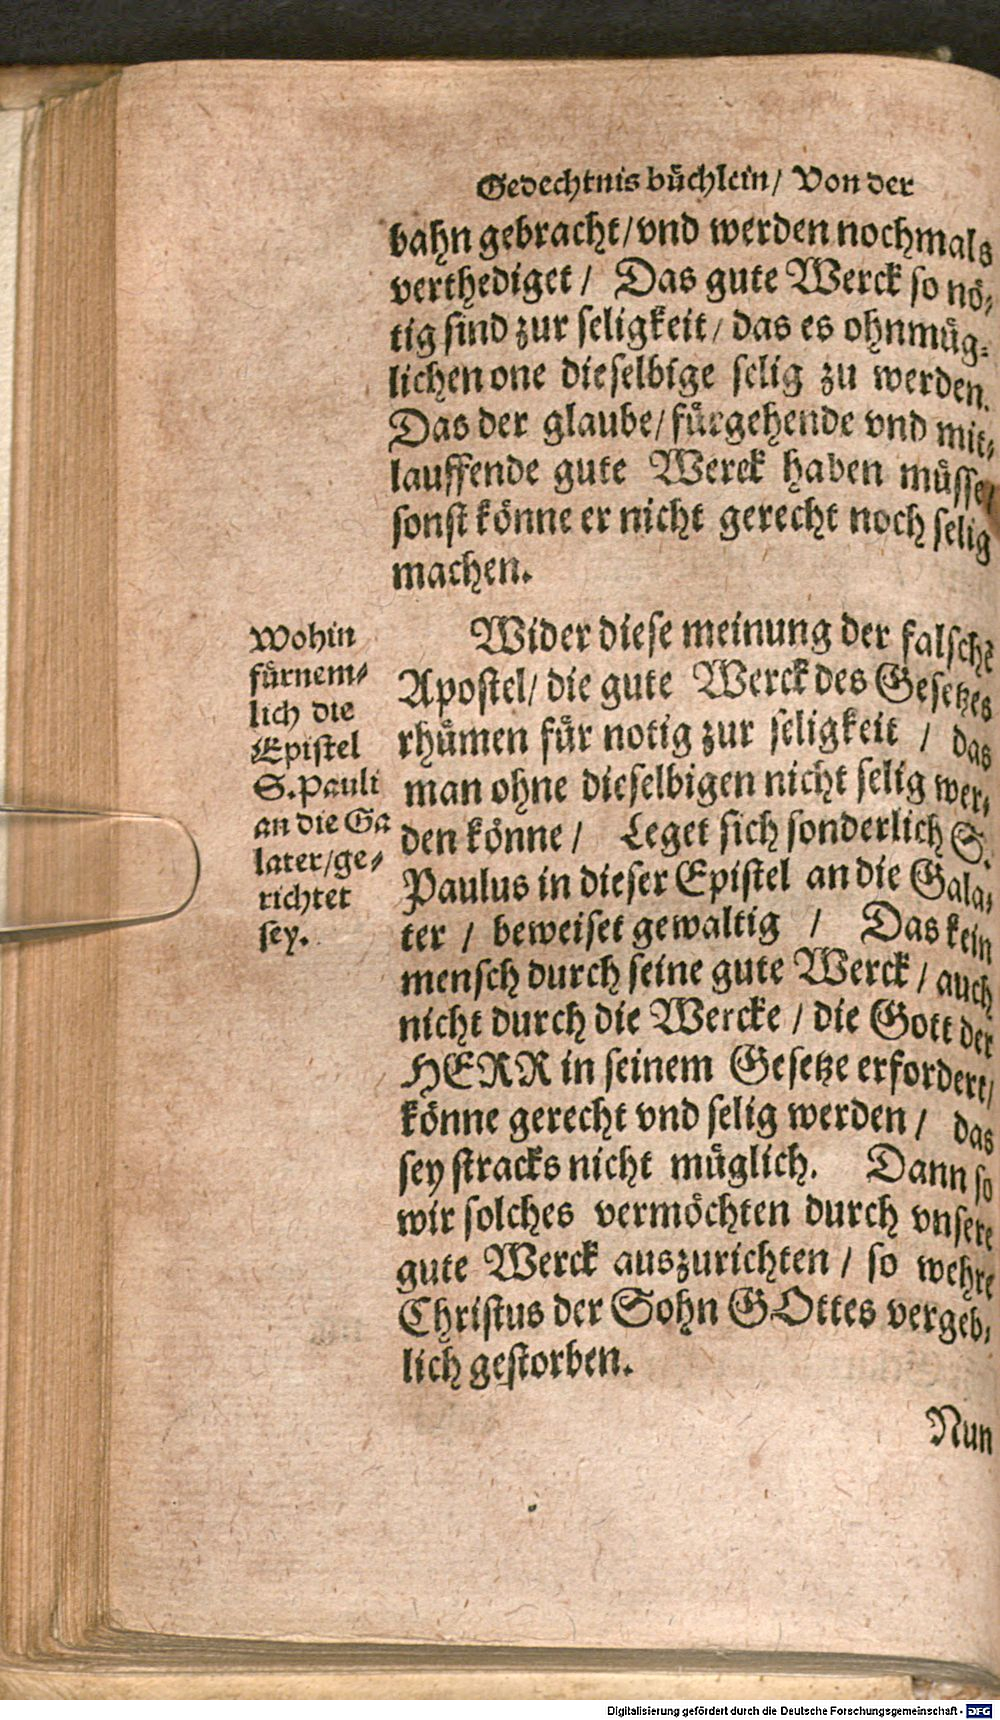 Gedechtnis büchlein/ Von der
bahn gebracht/vnd werden nochmals
verthediget/ Das gute Werck so nö-
tig sind zur seligkeit/ das es ohnmüg-
lichen one dieselbige selig zu werden.
Das der glaube/fürgehende vnd mit-
lauffende gute Werck haben müsse/
sonst könne er nicht gerecht noch selig
machen.
Wohin
fürnem-
lich die
Epistel
S. Pauli
an die Ga
later/ge-
richtet
sey.
Wider diese meinung der falsche
Apostel/ die gute Werck des Gesetzes
rhümen für notig zur seligkeit / das
man ohne dieselbigen nicht selig wer-
den könne/ Leget sich sonderlich S.
Paulus in dieser Epistel an die Gala-
ter / beweiset gewaltig / Das kein
mensch durch seine gute Werck/ auch
nicht durch die Wercke / die Gott der
HERR in seinem Gesetze erfordert/
könne gerecht vnd selig werden / das
sey stracks nicht müglich. Dann so
wir solches vermöchten durch vnsere
gute Werck auszurichten / so wehre
Christus der Sohn GOttes vergeb-
lich gestorben.
Nun
Digitalisierung gefördert durch die Deutsche Forschungsgemeinschaft - DFG